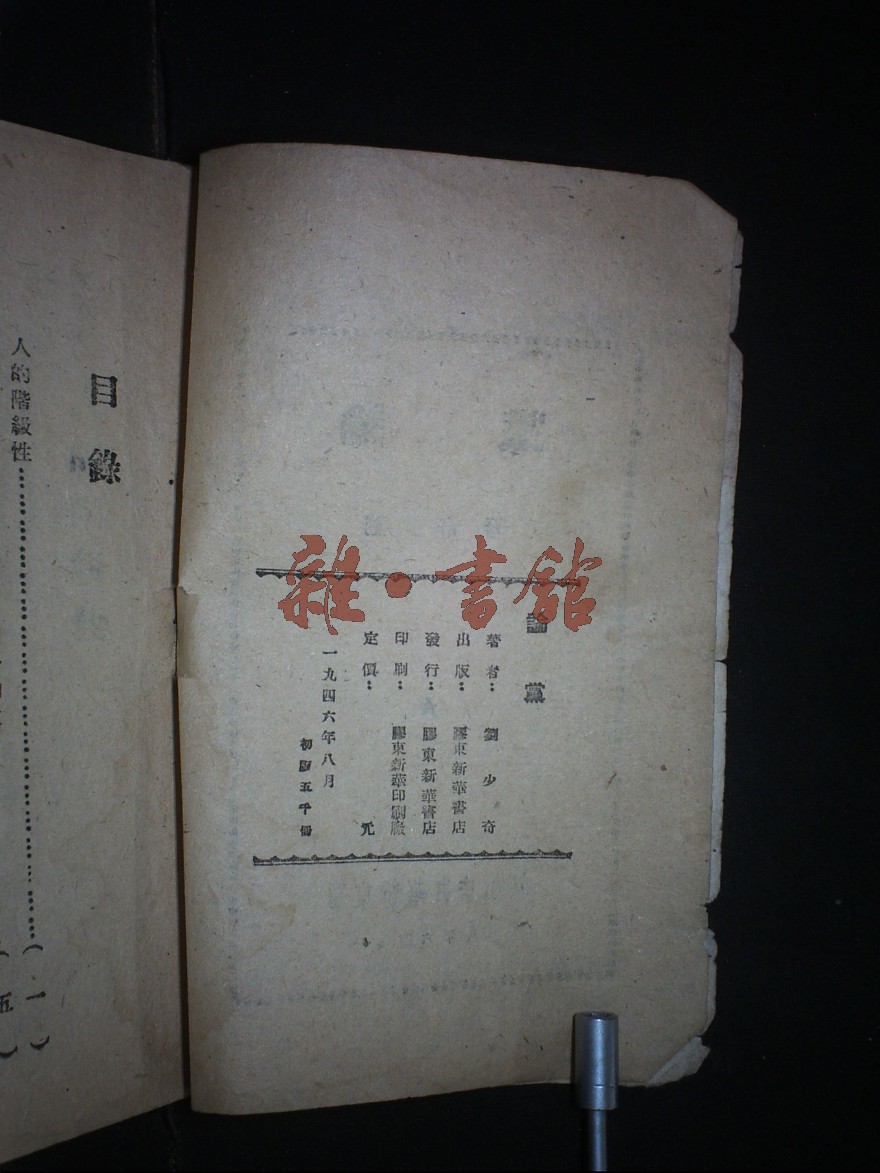 論黨
著者：劉少奇
出版：膠東新華書店
發行：膠東新華書店
印刷：膠東新華印刷廠
定價：元
一九四六年八月
初版五千冊
目錄
人的階級性……（一）
（五）
雜·書館